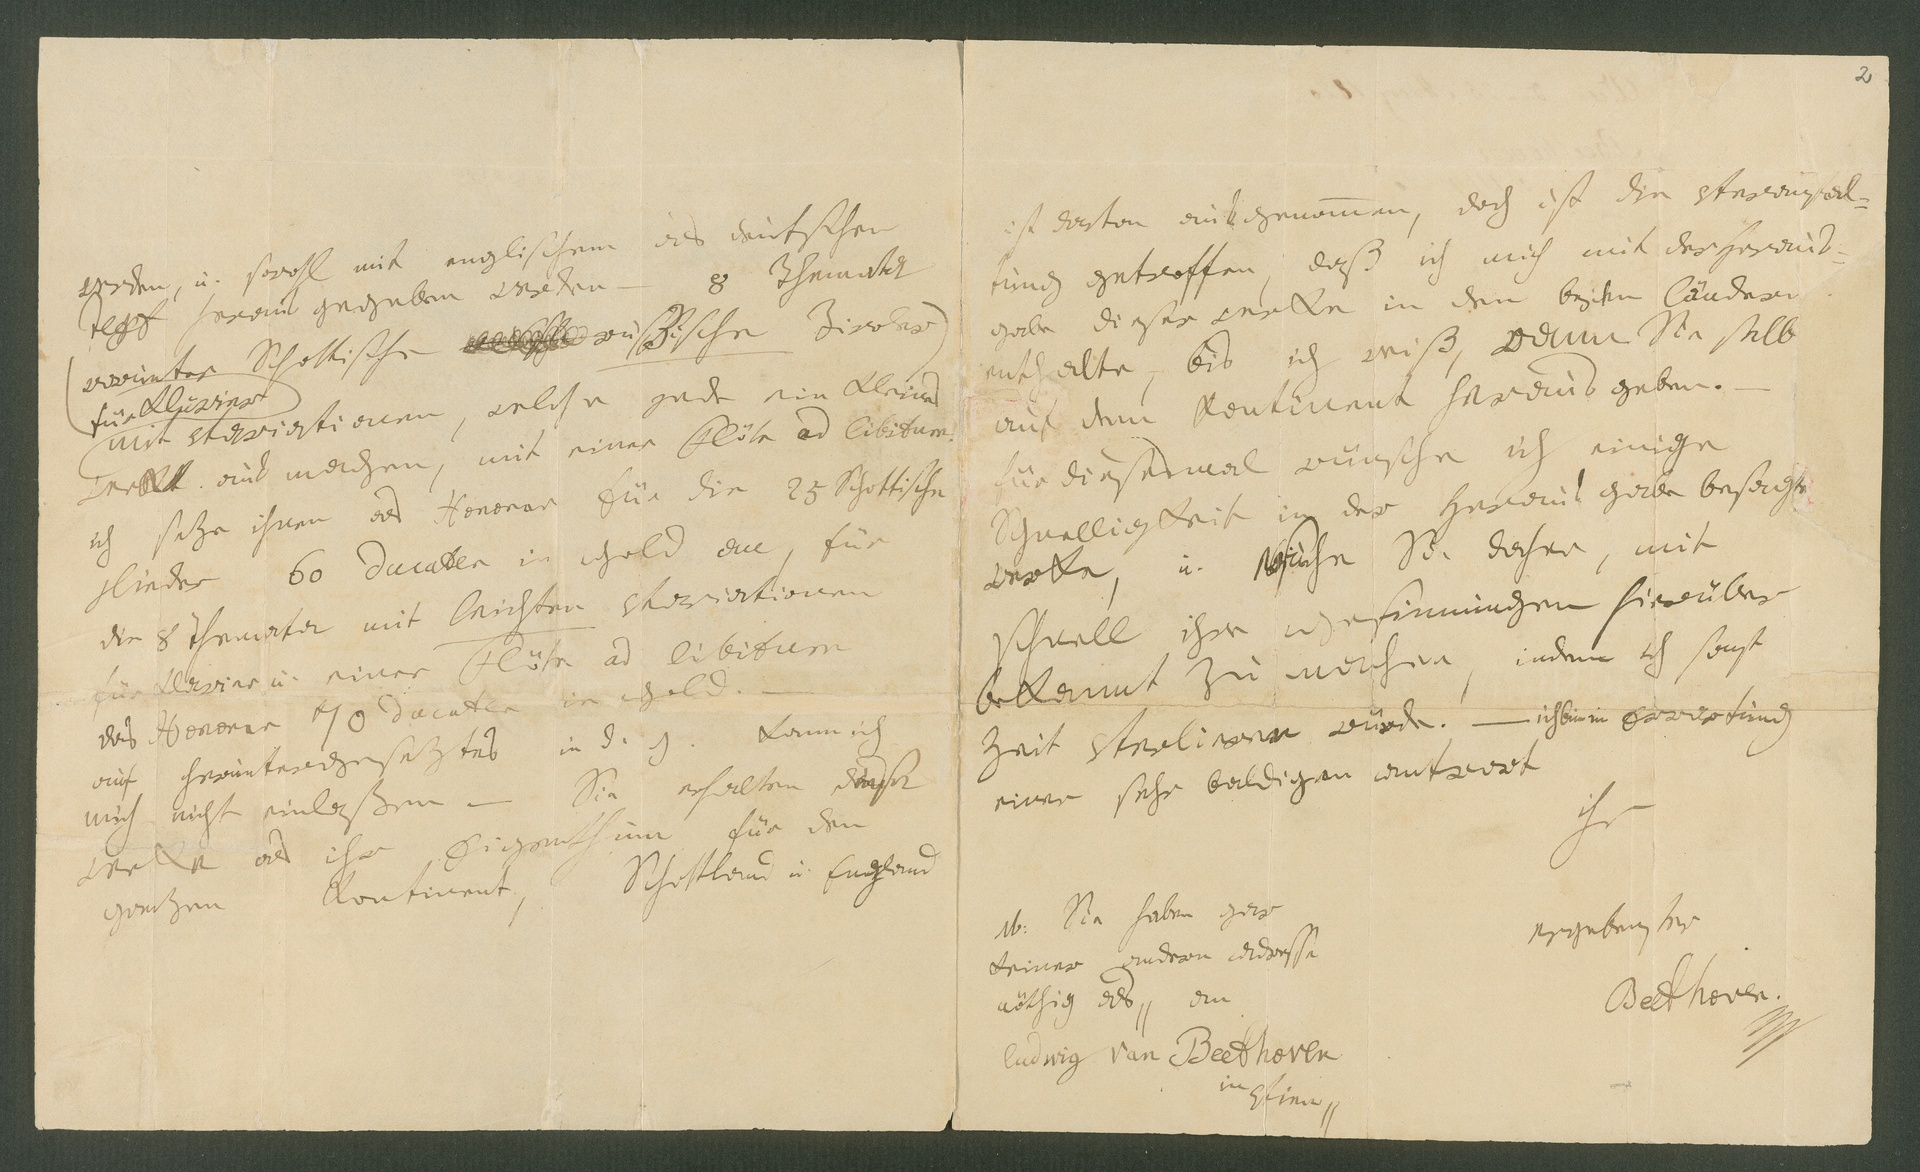 werden, u. sowohl mit englischem als deutschen
Text herausgegeben werden — 8 Themata
(worunter Schottische russische Tiroler)
für Klavier
mit Variationen, welche jede ein kleines
Werk ausmachen, mit einer Flöte ad libitum.
ich setze ihnen als Honorar für die 25 Schottische
Lieder 60 Ducaten in Gold an, für
die 8 Themata mit leichten Variationen
für Klavier u. einer Flöte ad libitum
das Honorar 70 Ducaten in Gold. —
auf heruntergesetztes in d. g. kann ich
mich nicht einlaßen — Sie erhalten diese
Werke als ihr Eigenthum für den
ganzen Kontinent, Schottland u. England
2
ist davon ausgenommen, doch ist die Veranstal=
tung getroffen, daß ich mich mit der Heraus=
gabe dieser Werke in den beyden Ländern
enthalte, bis ich weiß, wann Sie selbe
auf dem Kontinent herausgeben. —
für diesesmal wünsche ich einige
Schnelligkeit in der Herausgabe besagter
Werke, u. Sie daher, mir
schnell ihre Gesinnungen hierüber
bekannt zu machen, indem ich sonst
Zeit verlieren würde. — ich bin in Erwartung
einer sehr baldigen Antwort
ihr
ergebenster
Beethoven.
Nb: Sie haben gar
keiner andern adresse
nöthig als,, an
ludwig van Beethoven
in Vien,,